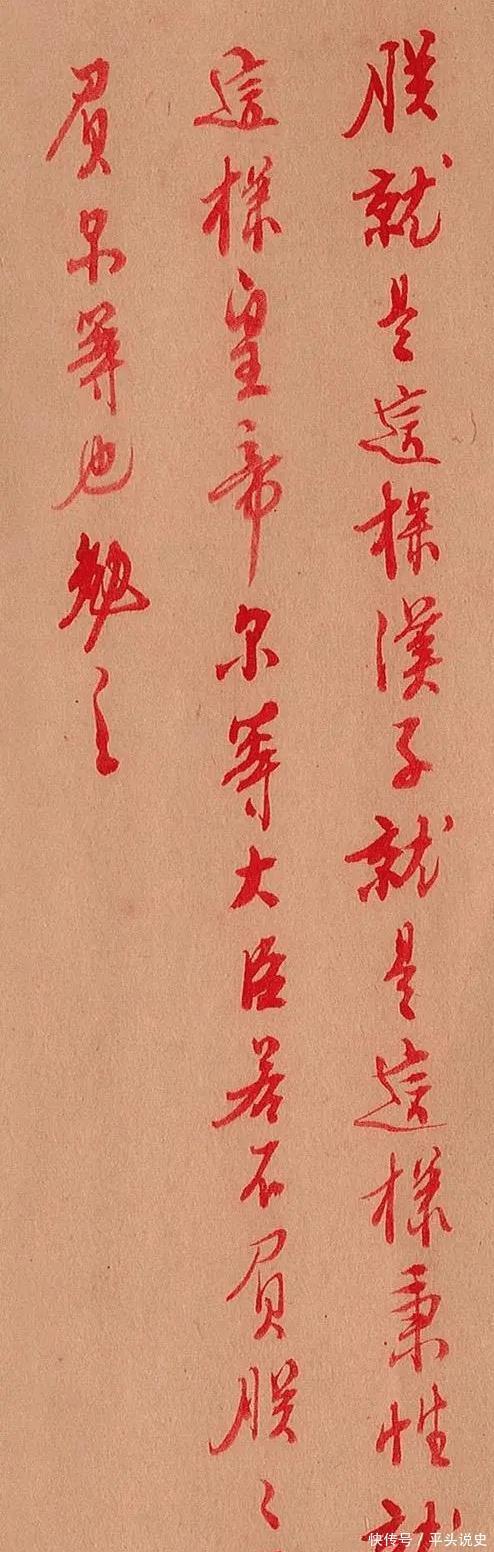 朕就是這樣漢子就是這樣秉性就
這樣皇帝尔等大臣若不負朕〻
負尔等也勉之
快传号／平头说史